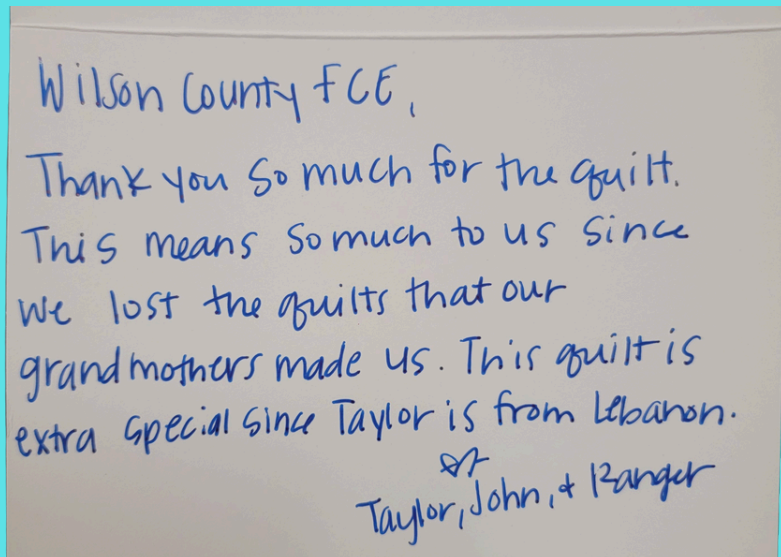 Wilson County FCE,
Thank you so much for the quilt.
This means so much to us since
we lost the quilts that our
grandmothers made us. This quilt is
extra special since Taylor is from Lebanon.
Taylor, John, & Ranger